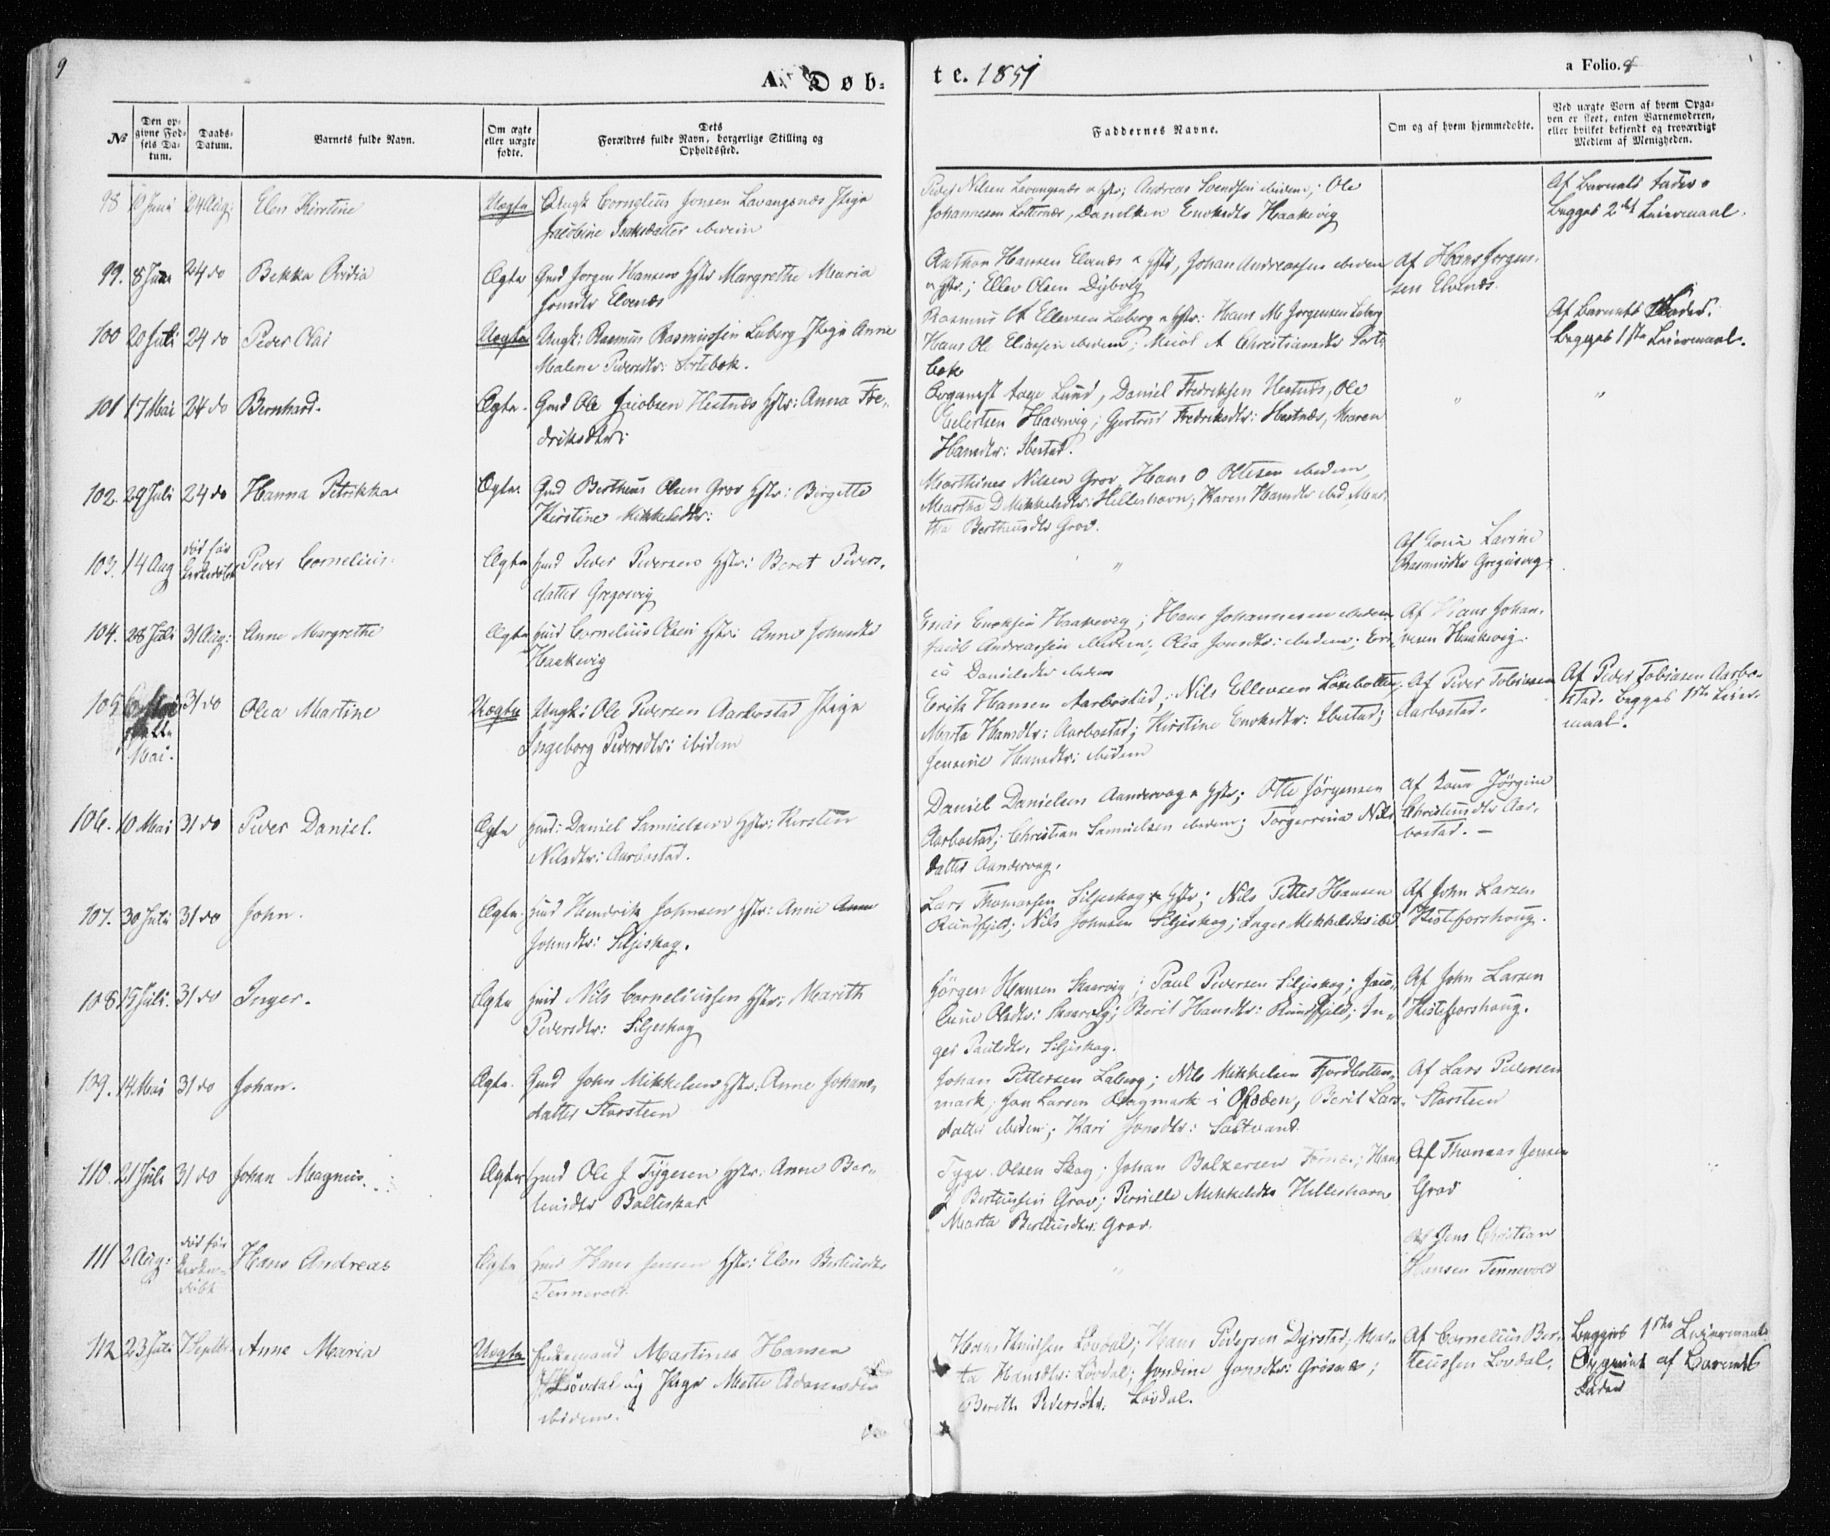 9
A. Døb-
te. 1851
a Folio. 8
No
Den op-
givne Fød-
sels Da-
tum.
Daabs-
Datum.
Barnets fulde Navn.
Om ægte
eller uægte
fødte.
Dets
Forældres fulde Navn, borgerlige Stilling og
Opholdssted.
Faddernes Navne.
Om og af hvem hjemmedøbte.
Ved uægte Børn af hvem Opga-
ven er skeet, enten Barnemoderen,
eller hvilket bekjendt og troværdigt
Medlem af Menigheden.
98 10 Juni 24 Aug: Elen Kirstine Uægte Ungk Cornelius Jonsen Lavangsnæs Pige
Jacobine Isaksdatter ibidem
Peder Nilsen Lavangsnæs & Hstr; Andreas Svendsen ibidem; Ole
Johannesen Lotternæs, Danilken Enoksdtr Haakevig
Af Barnets Fader
begges 2det Leiermaal.
99. 8 Juni 24 do Bekka Ovidia Ægte Gmd Jørgen Hansen Hstr Margrethe Maria
Jonsdtr Elvenæs
Anthon Hansen Elvenæs & Hstr, Johan Andreassen ibidem
& Hstr; Ellev Olsen Dybvig
Af Hans Jørgen-
sen Elvenæs.
100 20 Juli 24 do Peder Olai Uægte Ungk: Rasmus Rasmussen Laberg Pige Anne
Malene Pedersdtr: Sortebek.
Rasmus Ellevsen Laberg & Hstr: Hans M. Jørgensen Laberg
Hans Ole Eliassen ibidem; A Christiansdtr Sorte
bek
Af Barnets Fader:
begges 1ste Leiermaal.
101 17 Mai 24 do Bernhard. Ægte. Gmd Ole Jacobsen Hestnæs Hstr: Anna Fre-
driksdtr:
Lund, Daniel Fredriksen Hestnæs, Ole
Havnvig; Gjertrud Fredriksdtr: Hestnæs, Maren
Hansdtr: Ibestad.
" "
102. 29 Juli 24 do Hanna Petrikka Ægte Gmd Bertheus Olsen Grov Hstr: Birgitte
Kirstine Mikkelsdtr:
Marthines Nilsen Grov, Hans O Oltesen ibidem,
Martha D Mikkelsdtr: Hilleshavn; Karen Hansdtr ibid, Mar-
tha Bertheusdtr Grov.
103. 14 Aug død før Kirkedøbt Peder Cornelius. Ægte Gmd Peder Pedersen Hstr: Beret Peders-
datter Gregusvig
"
Af Kone Lavine
Rasmusdtr Gregusvig.
104. 28 Juli 31 Aug: Anne Margrethe Ægte Gmd Cornelius Olsen Hstr: Anne Johnsdtr
Haakevig
Enoksen Haakevig; Hans Johannesen ibidem
Jacob Andreassen ibidem; Olea Jonsdtr: ibidem;
Danielsdtr ibidem
Af Hans Johan-
nesen Haakevig.
105 Mai. 31 do Olea Martine Uægte Ungk: Ole Pedersen Aarbostad Pige
Ingeborg Pedersdtr: ibidem
Erik Hansen Aarbostad; Nils Ellevsen Løxebotten,
Marta Hansdtr: Aarbostad; Kirstine Enoksdtr: Ibestad;
Jensine Hansdtr: ibidem
Af Peder Tobiasen
Aarbostad.
Af Peder Tobiasen Aarbo-
stad. Begges 1ste Leier-
maal.
106. 10 Mai 31 do Peder Daniel. Ægte Gmd: Daniel Samuelsen Hstr: Kirsten
Nilsdtr: Aarbostad.
Daniel Danielsen Aandervag & Hstr; Jørgensen
Aarbostad; Christian Samuelsen ibidem; Nils-
datter Aandervag.
Af Kone Jørgine
Christensdtr Aar-
bostad. —
107. 30 Juli 31 do John. Ægte. Gmd Hendrik Johnsen Hstr: Anne
Johnsdtr: Siljeskog.
Lars Thomassen Siljeskog & Hstr; Nils Petter Hansen
Rundfjeld; Nils Johnsen Siljeskog; Inger Mikkelsdtr ibid
Af John Larsen
Kisteforshoug.
108 15 Juli. 31 do Inger. Ægte Gmd Nils Corneliussen Hstr: Mareth
Pedersdtr: Siljeskog
Jørgen Hansen Skaarvig; Paul Pedersen Siljeskog; Jaco-
bine Olsdtr: Skaarvig; Berit Hansdtr: Rundfjeld; In-
ger Paulsdtr, Siljeskog.
Af John Larsen
Kisteforshoug.
109. 14 Mai 31 do Johan. Ægte. Gmd John Mikkelsen Hstr: Anne Johans-
datter Storsteen
Johan Pettersen Laberg; Nils Mikkelsen Fjordbotten-
mark, Jon Larsen i Ofoden, Berit Lars-
datter ibidem; Kari Jonsdtr: Saltvand.
Af Lars Pedersen
Storsteen
110. 21 Juli 31 do Johan Magnus. Ægte Gmd Ole J Tygesen Hstr: Anne Ber-
teusdtr Bolteskar
Tyge Olsen Skog; Johan Balzersen; Hans
J Berteussen Grov; Pernille Mikkelsdtr Hilleshavn
Marta Berteusdtr: Grov.
Af Thomas Jensen
Grov
111 2 Aug: død før Kirke-
døbt Hans Andreas Ægte Gmd Hans Jensen Hstr: Elen Berteusdtr
Tennevold.
"
Af Jens Christian
Hansen Tennevold
112 23 Juli 7 Septbr Anne Maria Uægte Enkemand Martines Hansen
Løvdal og Pige Mette Adamsdtr
ibidem.
Hans Knudsen Løvdal; Hans Pedersen Dyrstad, Mar-
ta Hansdtr: Løvdal; Jondine Jonsdtr: Grøsnæs;
Bereth Pedersdtr. Løvdal.
Af Cornelius Ber-
teussen Løvdal.
Begges 1ste Leiermaal.
Opgivet af Barnets
Fader